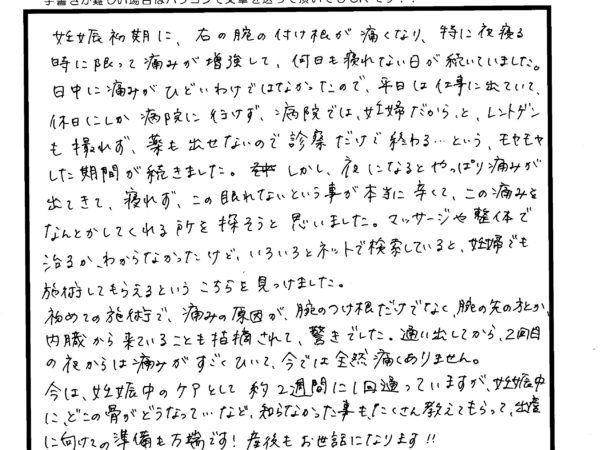 手書きが難しい場合はパソコンで文章を送って頂いてもOKです!!
妊娠初期に、右の腕の付け根が痛くなり、特に夜寝る
時に限って痛みが増強して、何日も寝れない日が続いていました。
日中に痛みがひどいわけではなかったので、平日は仕事に出ていて、
休日にしか病院に行けず、病院では、妊婦だから、と、レントゲン
も撮れず、薬も出せないので診察だけで終わる…という、モヤモヤ
した期間が続きました。しかし、夜になるとやっぱり痛みが
出てきて、寝れず、この眠れないという事が本当に辛くて、この痛みを
なんとかしてくれる所を探そうと思いました。マッサージや整体で
治るか、わからなかったけど、いろいろとネットで検索していると、妊婦でも
施術してもらえるというこちらを見つけました。
初めての施術で、痛みの原因が、腕のつけ根だけでなく、腕の先の方とか、
内臓から来ていることも指摘されて、驚きでした。通い出してから、2回目
の夜からは痛みがすごくひいて、今では全然痛くありません。
今は、妊娠中のケアとして約2週間に1回通っていますが、妊娠中
に、どこの骨がどうなっていくなど、知らなかった事も、たくさん教えてもらって、出産
に向けての準備も万端です!産後もお世話になります!!